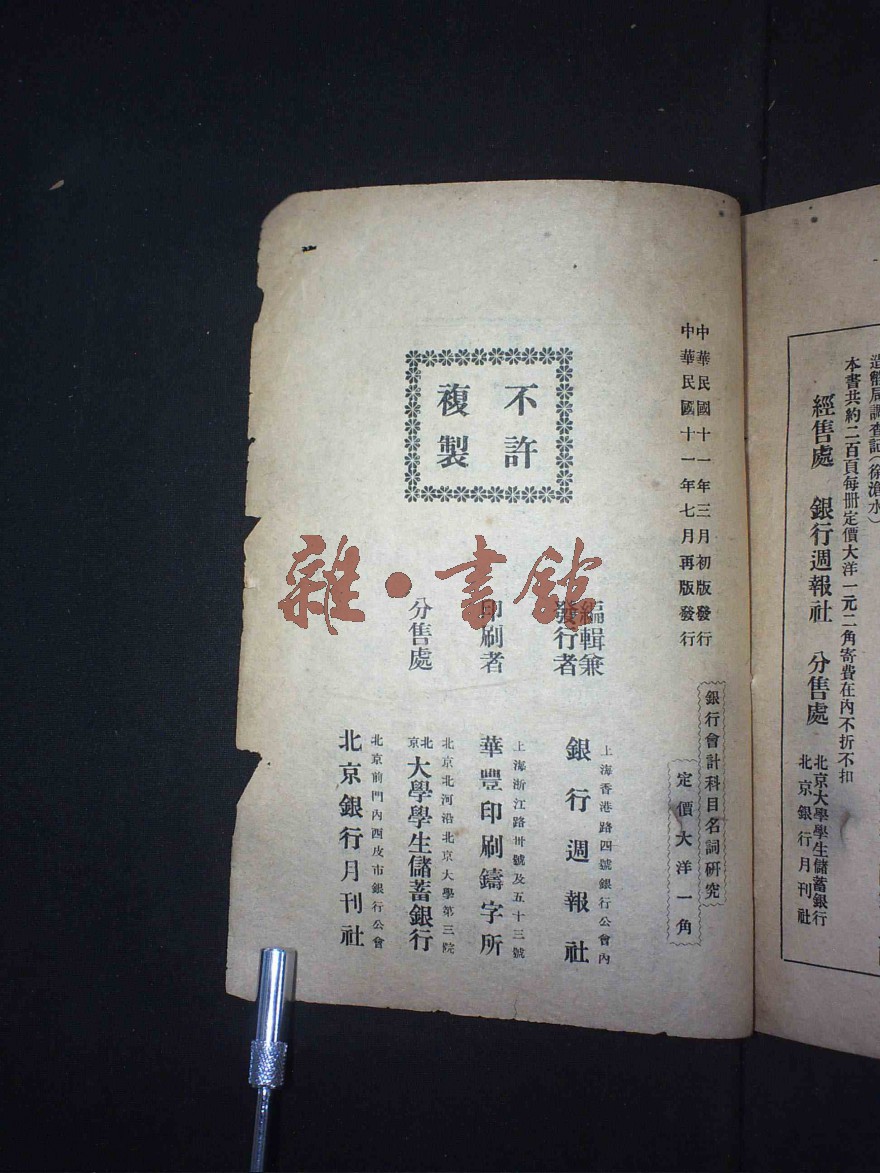 造幣局調查記(徐滄水)
本書共約二百頁每冊定價大洋一元二角寄費在內不折不扣
經售處　銀行週報社　分售處
北京大學學生儲蓄銀行
北京銀行月刊社
中華民國十一年三月初版發行
中華民國十一年七月再版發行
銀行會計科目名詞研究
定價大洋一角
不許
複製
編輯兼
發行者
上海香港路四號銀行公會內
銀行週報社
印刷者
上海浙江路卅號及五十三號
華豐印刷鑄字所
分售處
北京北河沿北京大學第三院
北京大學學生儲蓄銀行
北京前門內西皮市銀行公會
北京銀行月刊社
雜·書館